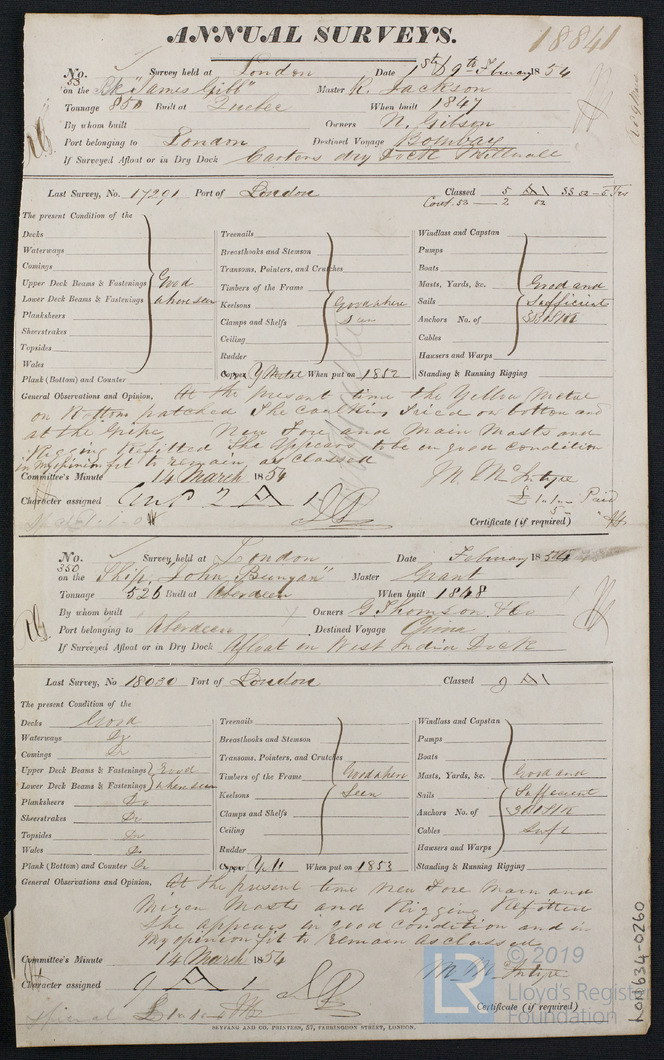 18841
ANNUAL SURVEYS.
No. 53 Survey held at London Date 1st & 9th February 1854
on the Bk "James Gibb" Master R. Jackson
Tonnage 850 Built at Quebec When built 1847
By whom built Owners N. Gibson
Port belonging to London Destined Voyage Bombay
If Surveyed Afloat or in Dry Dock Carters dry Dock Millwall
Last Survey, No. 17291 Port of London Classed 5 A1 SS 52 - 5 Yrs
Cont. 53 - 2
The present Condition of the
Decks
Waterways
Comings
Upper Deck Beams & Fastenings Good
Lower Deck Beams & Fastenings where seen
Planksheers
Sheerstrakes
Topsides
Wales
Plank (Bottom) and Counter
Treenails
Breasthooks and Stemson
Transoms, Pointers, and Crutches
Timbers of the Frame
Keelsons Good where
Clamps and Shelfs Seen
Ceiling
Rudder
Copper Y Metal When put on 1852
Windlass and Capstan
Pumps
Boats
Masts, Yards, &c. Good and
Sails Sufficient
Anchors No. of 3B 1S 1K
Cables
Hausers and Warps
Standing & Running Rigging
General Observations and Opinion, At the present time the Yellow Metal
on Bottom patched The caulking tried on bottom and
at the Gripe New Fore and Main Masts and
Rigging Refitted She appears to be in good condition
in my opinion fit to remain as classed
Committee's Minute 14 March 1854 M. McIntyre
Character assigned Cont 2 A 1 £1.1. Paid
Certificate (if required)
No. 350 Survey held at London Date February 1854
on the Ship "John Bunyan" Master Grant
Tonnage 526 Built at Aberdeen When built 1848
By whom built Owners G. Thomson & Co
Port belonging to Aberdeen Destined Voyage China
If Surveyed Afloat or in Dry Dock Afloat in West India Dock
Last Survey, No 18030 Port of London Classed 9 A1
The present Condition of the
Decks Good
Waterways Do
Comings Do
Upper Deck Beams & Fastenings Good
Lower Deck Beams & Fastenings where seen
Planksheers Do
Sheerstrakes Do
Topsides Do
Wales Do
Plank (Bottom) and Counter Do
Treenails
Breasthooks and Stemson
Transoms, Pointers, and Crutches
Timbers of the Frame Good where
Keelsons Seen
Clamps and Shelfs
Ceiling
Rudder
Copper Y.M. When put on 1853
Windlass and Capstan
Pumps
Boats
Masts, Yards, &c. Good and
Sails Sufficient
Anchors No. of 3B 1S 1K
Cables Suft
Hausers and Warps
Standing & Running Rigging
General Observations and Opinion, At the present time new Fore Main and
Mizen Masts and Rigging Refitted
She appears in good condition and in
my opinion fit to remain as classed
Committee's Minute 14 March 1854 M. McIntyre
Character assigned 9 A 1
Certificate (if required)
SEYFANG AND CO. PRINTERS, 57, FARRINGDON STREET, LONDON.
LON634-0260
LR
© 2019
Lloyd's Register
Foundation